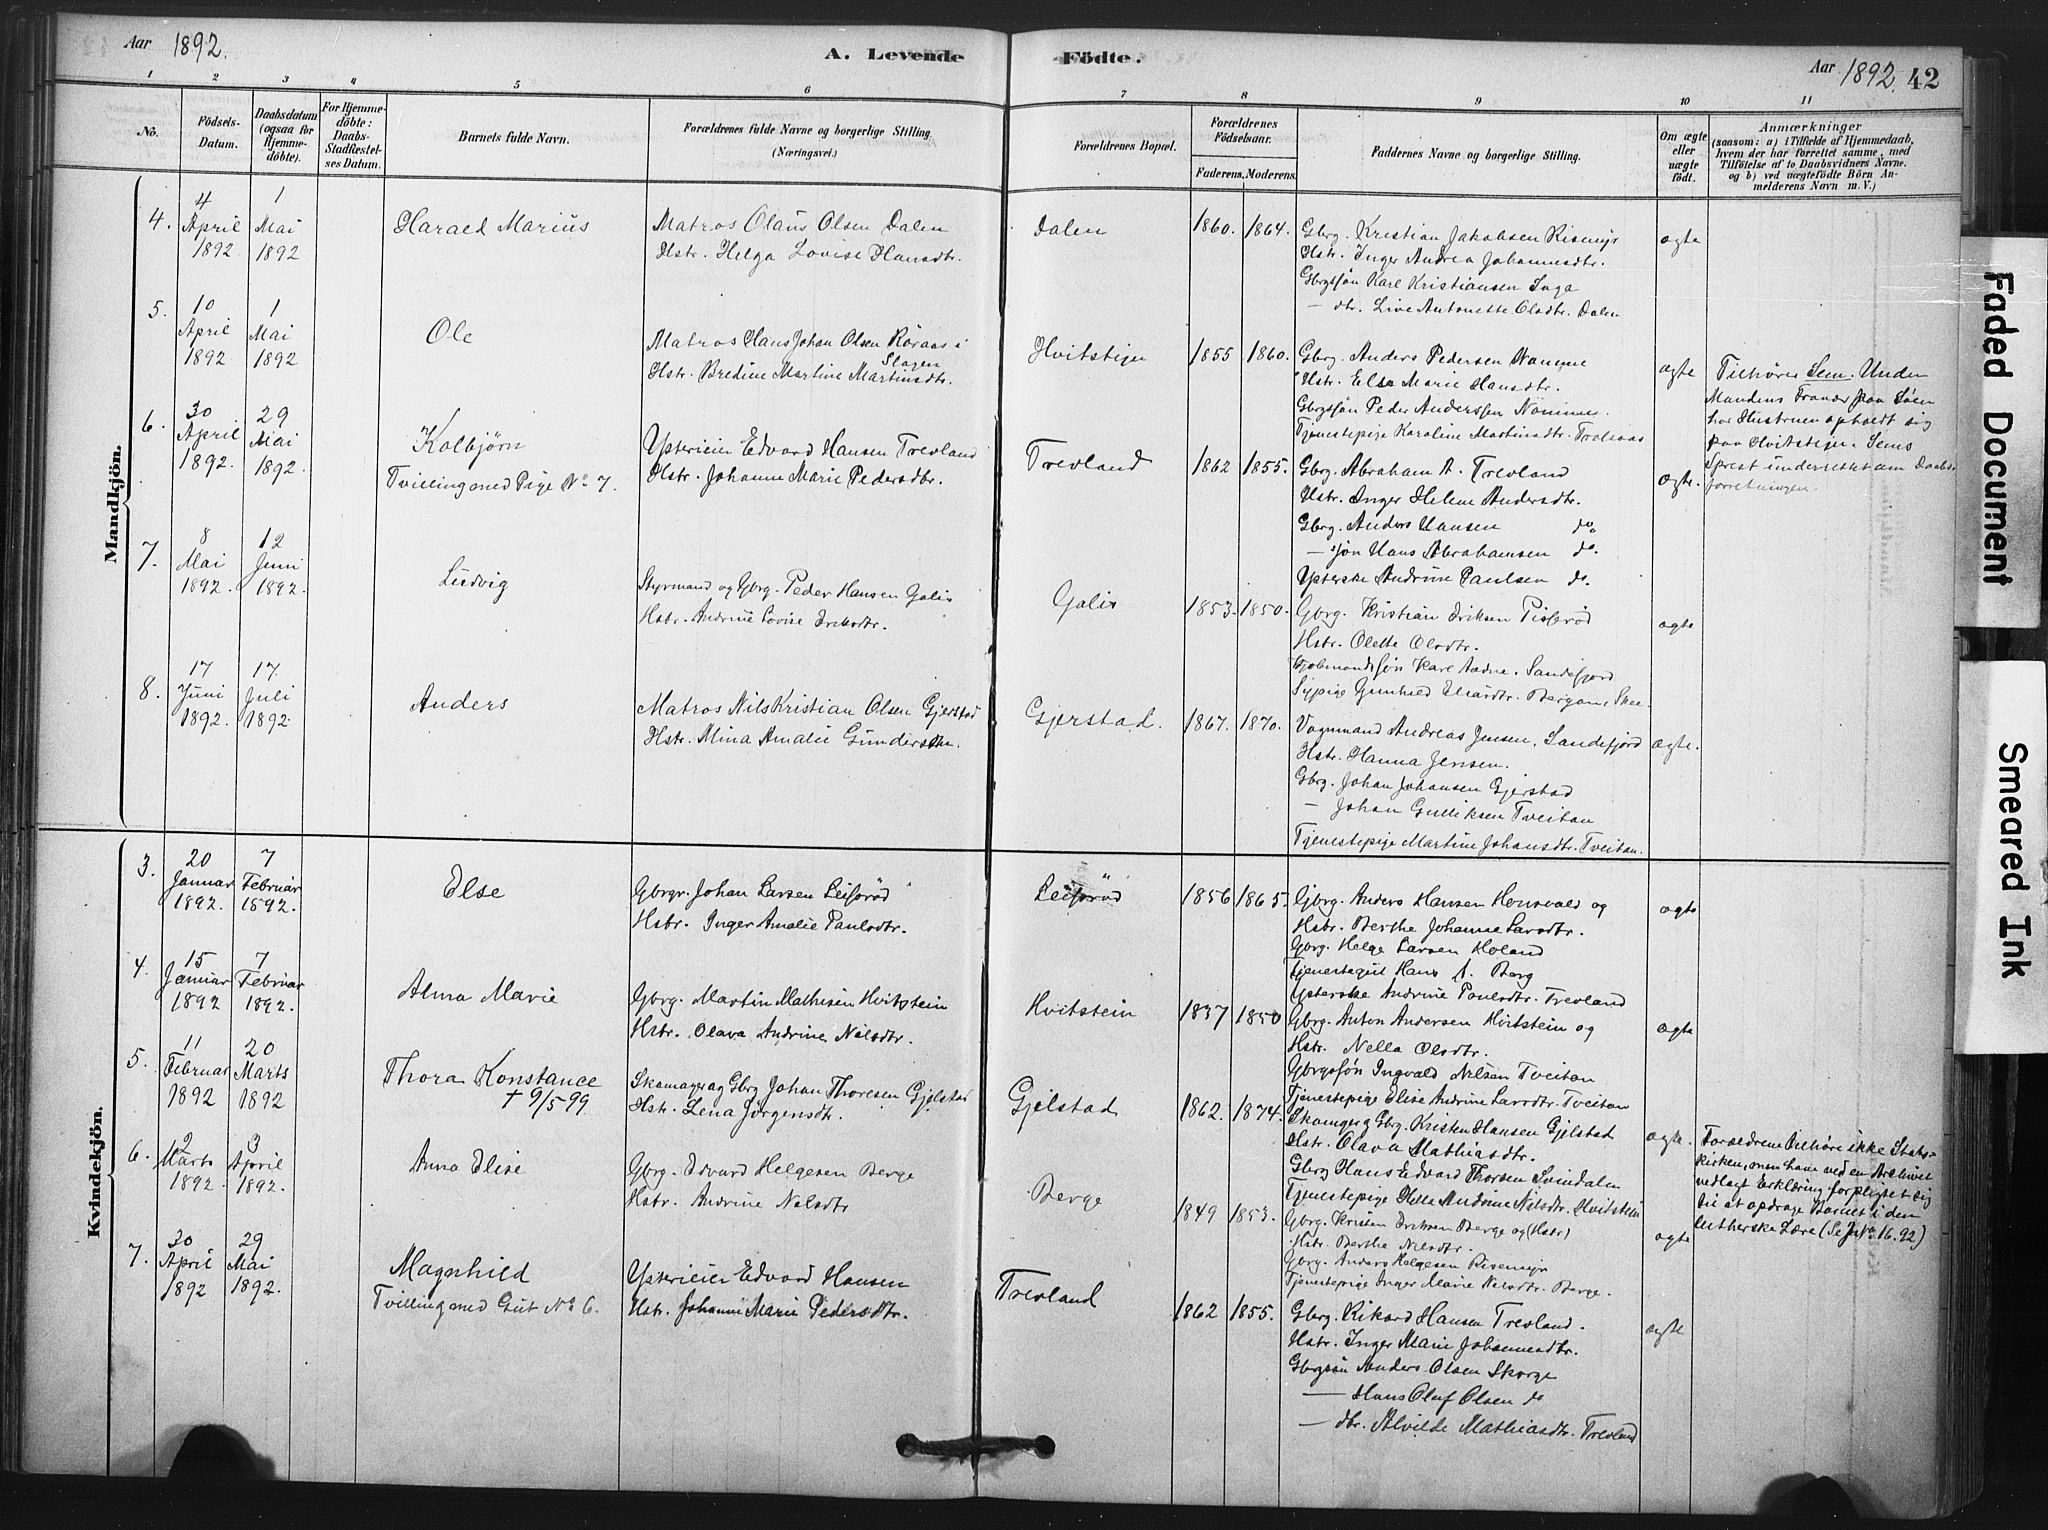 Aar 1892.
A. Levende Födte.
Aar 1892. 42
1 2 3 4 5 6 7 8 9 10 11
No.
Födsels-Datum.
Daabsdatum (ogsaa for Hjemmedöbte).
For Hjemmedöbte: Daabs-Stadfæstelses Datum.
Barnets fulde Navn.
Forældrenes fulde Navne og borgerlige Stilling.
(Næringsvei.)
Forældrenes Bopæl.
Forældrenes Födselsaar.
Faderens. Moderens.
Faddernes Navne og borgerlige Stilling.
Om ægte eller uægte födt.
Anmærkninger
(saasom: a) i Tilfælde af Hjemmedaab, hvem der har forrettet samme, med Tilföielse af to Daabsvidners Navne. og b) ved uægtefödte Börn Anmelderens Navn m. V.)
Mandkjön.
4. 4 April 1892 1 Mai 1892
Harald Marius
Matros Olaus Olsen Dalen
Hstr. Helga Lovise Hansdtr.
Dalen
1860. 1864.
Gbrg. Kristian Jakobsen Risemyr
Hstr. Inger Andrea Johannesdtr.
Gbrgsføn Karl Kristiansen
— dtr. Live Antonette Olsdtr. Dalen
ægte
5. 10 April 1892 1 Mai 1892
Ole
Matros Hans Johan Olsen Röraas i Slagen
Hstr. Bredine Martine Martinsdtr.
Hvitstign
1855 1860.
Gbrg. Anders Pedersen
Hstr. Else Marie Hansdtr.
Gbrgsføn Peder Anderssen
Tjenestepige Karoline Martinsdtr.
ægte
Tilhører Sem. Under
Mandens Fravær paa Søen
har Hustruen opholdt sig
paa Hvitstign. Sems
Sprest underrettet om Daabs-
forretningen.
6. 30 April 1892. 29 Mai 1892.
Kolbjørn
Tvilling med Pige No 7.
Ysterieier Edvard Hansen Trevland
Hstr. Johanne Marie Pedersdtr.
Trevland
1862 1855.
Gbrg. Abraham A. Trevland
Hstr. Inger Helene Andersdtr.
Gbrg. Anders Hansen do
— søn Hans Abrahamsen do.
Ysterske Andrine Paulsen do.
ægte.
7. 8 Mai 1892. 12 Juni 1892.
Ludvig
Styrmand og Gbrg. Peder Hansen Galis
Hstr. Andrine Lovise Eriksdtr.
Galis
1853. 1850.
Gbrg. Kristian Eriksen Pisserød
Hstr. Olette Olsdtr.
Kjøbmandssøn Karl Sandefjord
Sypige Gunhild Bergan, Skee
ægte
8. 17 Juni 1892. 17. Juli 1892.
Anders
Matros Nils Kristian Olsen Gjerstad
Hstr. Mina Amalie Gundersdtr.
Gjerstad.
1867. 1870.
Vognmand Andreas Jensen, Sandefjord
Hstr. Hanna Jensen.
Gbrg. Johan Johansen Gjerstad
— Johan Gulliksen Tveitan
Tjenestepige Martine Johansdtr. Tveitan.
ægte.
Kvindekjön.
3. 20 Januar 1892. 7 Februar 1892.
Else
Gbrgr. Johan Larsen Leisrød
Hstr. Inger Amalie Paulsdtr.
Leisrød
1856 1865.
Gbrg. Anders Hansen Honsvald og
Hstr. Berthe Johanne Larsdtr.
Gbrg. Helge Larsen Holand
Tjenestegut Hans A. Berg
Ysterske Andrine Paulsdtr. Trevland
ægte
4. 15 Januar 1892 7 Februar 1892.
Alma Marie
Gbrg. Martin Mathisen Hvitstein
Hstr. Olava Andrine Nilsdtr.
Hvitstein
1837 1850
Gbrg. Anton Andersen Hvitstein og
Hstr. Nella Olsdtr.
Gbrgssøn Ingvald Nilsen Tveitan
Tjenestepige Elise Andrine Larsdtr. Tveitan
ægte
5. 11 Februar 1892 20 Marts 1892
Thora Konstance
† 9/5 99
Skomager og Gbrg Johan Thoresen Gjelstad
Hstr. Lena Jørgensdtr.
Gjelstad
1862. 1874.
Skomger og Gbrg. Kristen Hansen Gjelstad
Hstr. Olava Mathiasdtr.
Gbrg Hans Edvard Thorsen Svindalen
Tjenestepige Helle Andrine Nilsdtr. Hvitstein
ægte.
6. 2 Marts 1892. 3 April 1892.
Anna Elise
Gbrg. Edvard Helgesen Berge
Hstr. Andrine Nilsdtr
Berge
1849 1853.
Gbrg. Kristen Eriksen Berge og (Hstr)
Hstr. Berthe Nilsdtr.
Gbrg. Anders Helgesen Risemyr
Tjenestepige Inger Marie Nilsdtr. Berge.
ægte
Forældrene tilhøre ikke Stats-
kirken, men have ved en Archivet
vedlagt Erklæring forpligtet sig
til at opdrage Barnet i den
lutherske Lære (Se No 16. 92)
7. 30 April 1892 29 Mai 1892.
Magnhild
Tvilling med Gut No 6.
Ysterieier Edvard Hansen
Hstr. Johanne Marie Pedersdtr.
Trevland
1862 1855.
Gbrg. Rikard Hansen Trevland.
Hstr. Inger Marie Johannesdtr.
Gbrgsøn Anders Olsen Skorge
— Hans Oluf Olsen do
— dtr. Alvilde Mathiasdtr. Trevland
ægte
Faded Document
Smeared Ink